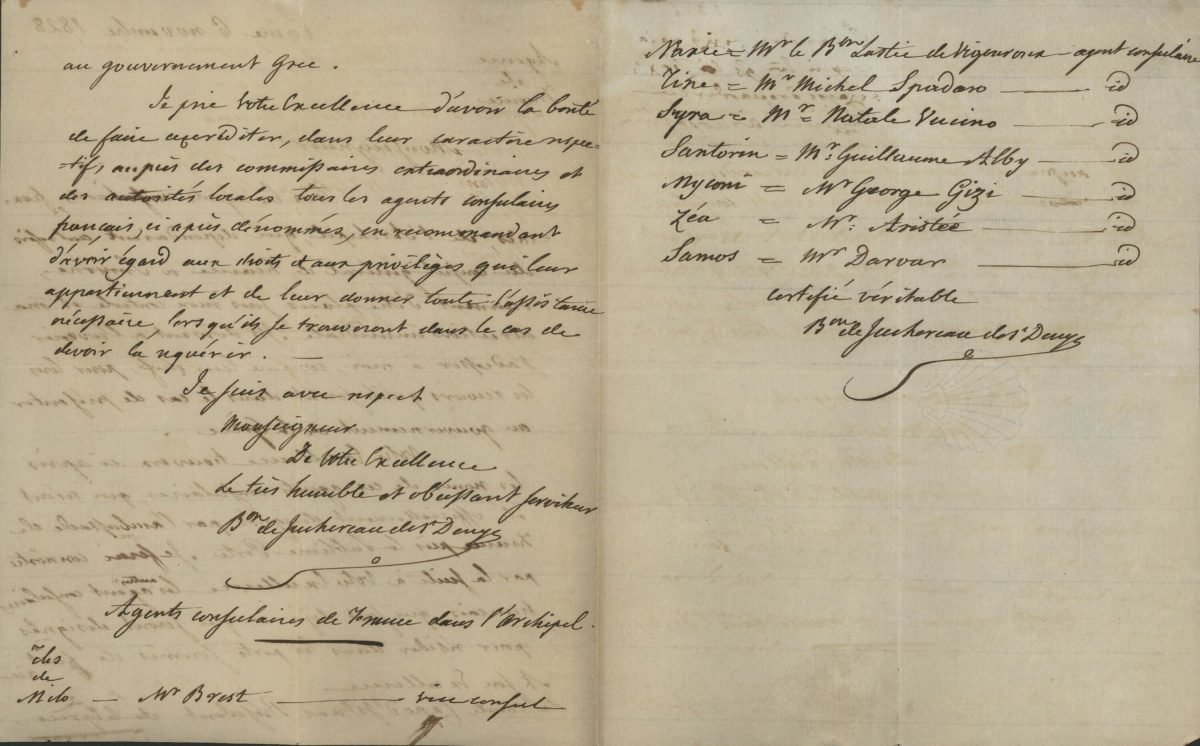 au gouvernement Grec.
Je prie Votre Excellence d'avoir la bonté
de faire accréditer, dans leur caractère respec-
-tif, auprès des commissaires extraordinaires et
des autorités locales tous les agents consulaires
français, ci après dénommés, en recommandant
d'avoir égard aux droits et aux privilèges qui leur
appartiennent et de leur donner toute l'assistance
nécessaire, lorsqu'ils se trouveront dans le cas de
devoir la réquérir. —
Je suis avec respect
Monseigneur
De Votre Excellence
Le très humble et obéissant serviteur
Bon de Juchereau de St Denys
Agents consulaires de France dans l'Archipel.
îles
de
Milo — Mr Brest — vice consul
Naxie = Mr le Bon Lastic de Vigouroux — agent consulaire
Tine = Mr Michel Spadaro — id
Syra = Mr = Natale Vucino — id
Santorin = Mr. Guillaume Alby — id
Myconi = Mr George Gizi — id
Zéa = Mr. Aristée — id
Samos = Mr Darvar — id
certifié véritable
Bon de Juchereau de St Denys